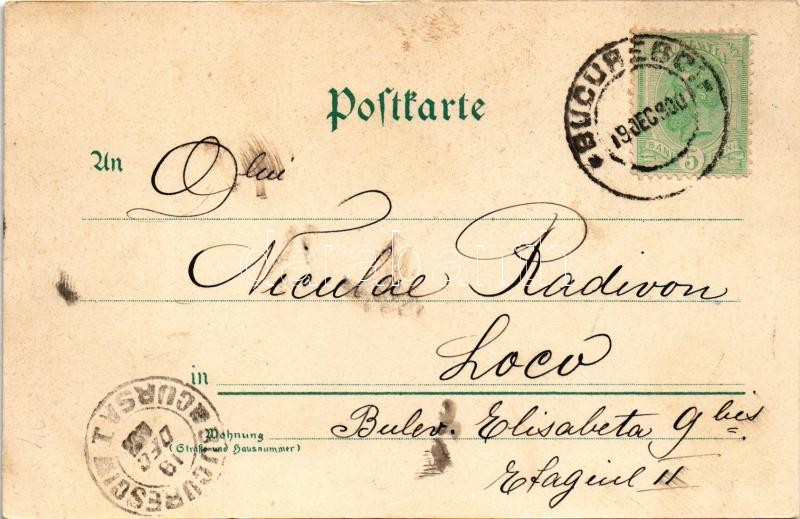 BUCURESCI
19 DEC 900
BANI 5
Postkarte
An Dlui
Niculae Radivon
in Loco
Wohnung
(Straße und Hausnummer)
Bulev. Elisabeta 9 bis
Etagiul II
BUCURESCI
CURSA I
19 DEC
darabanth